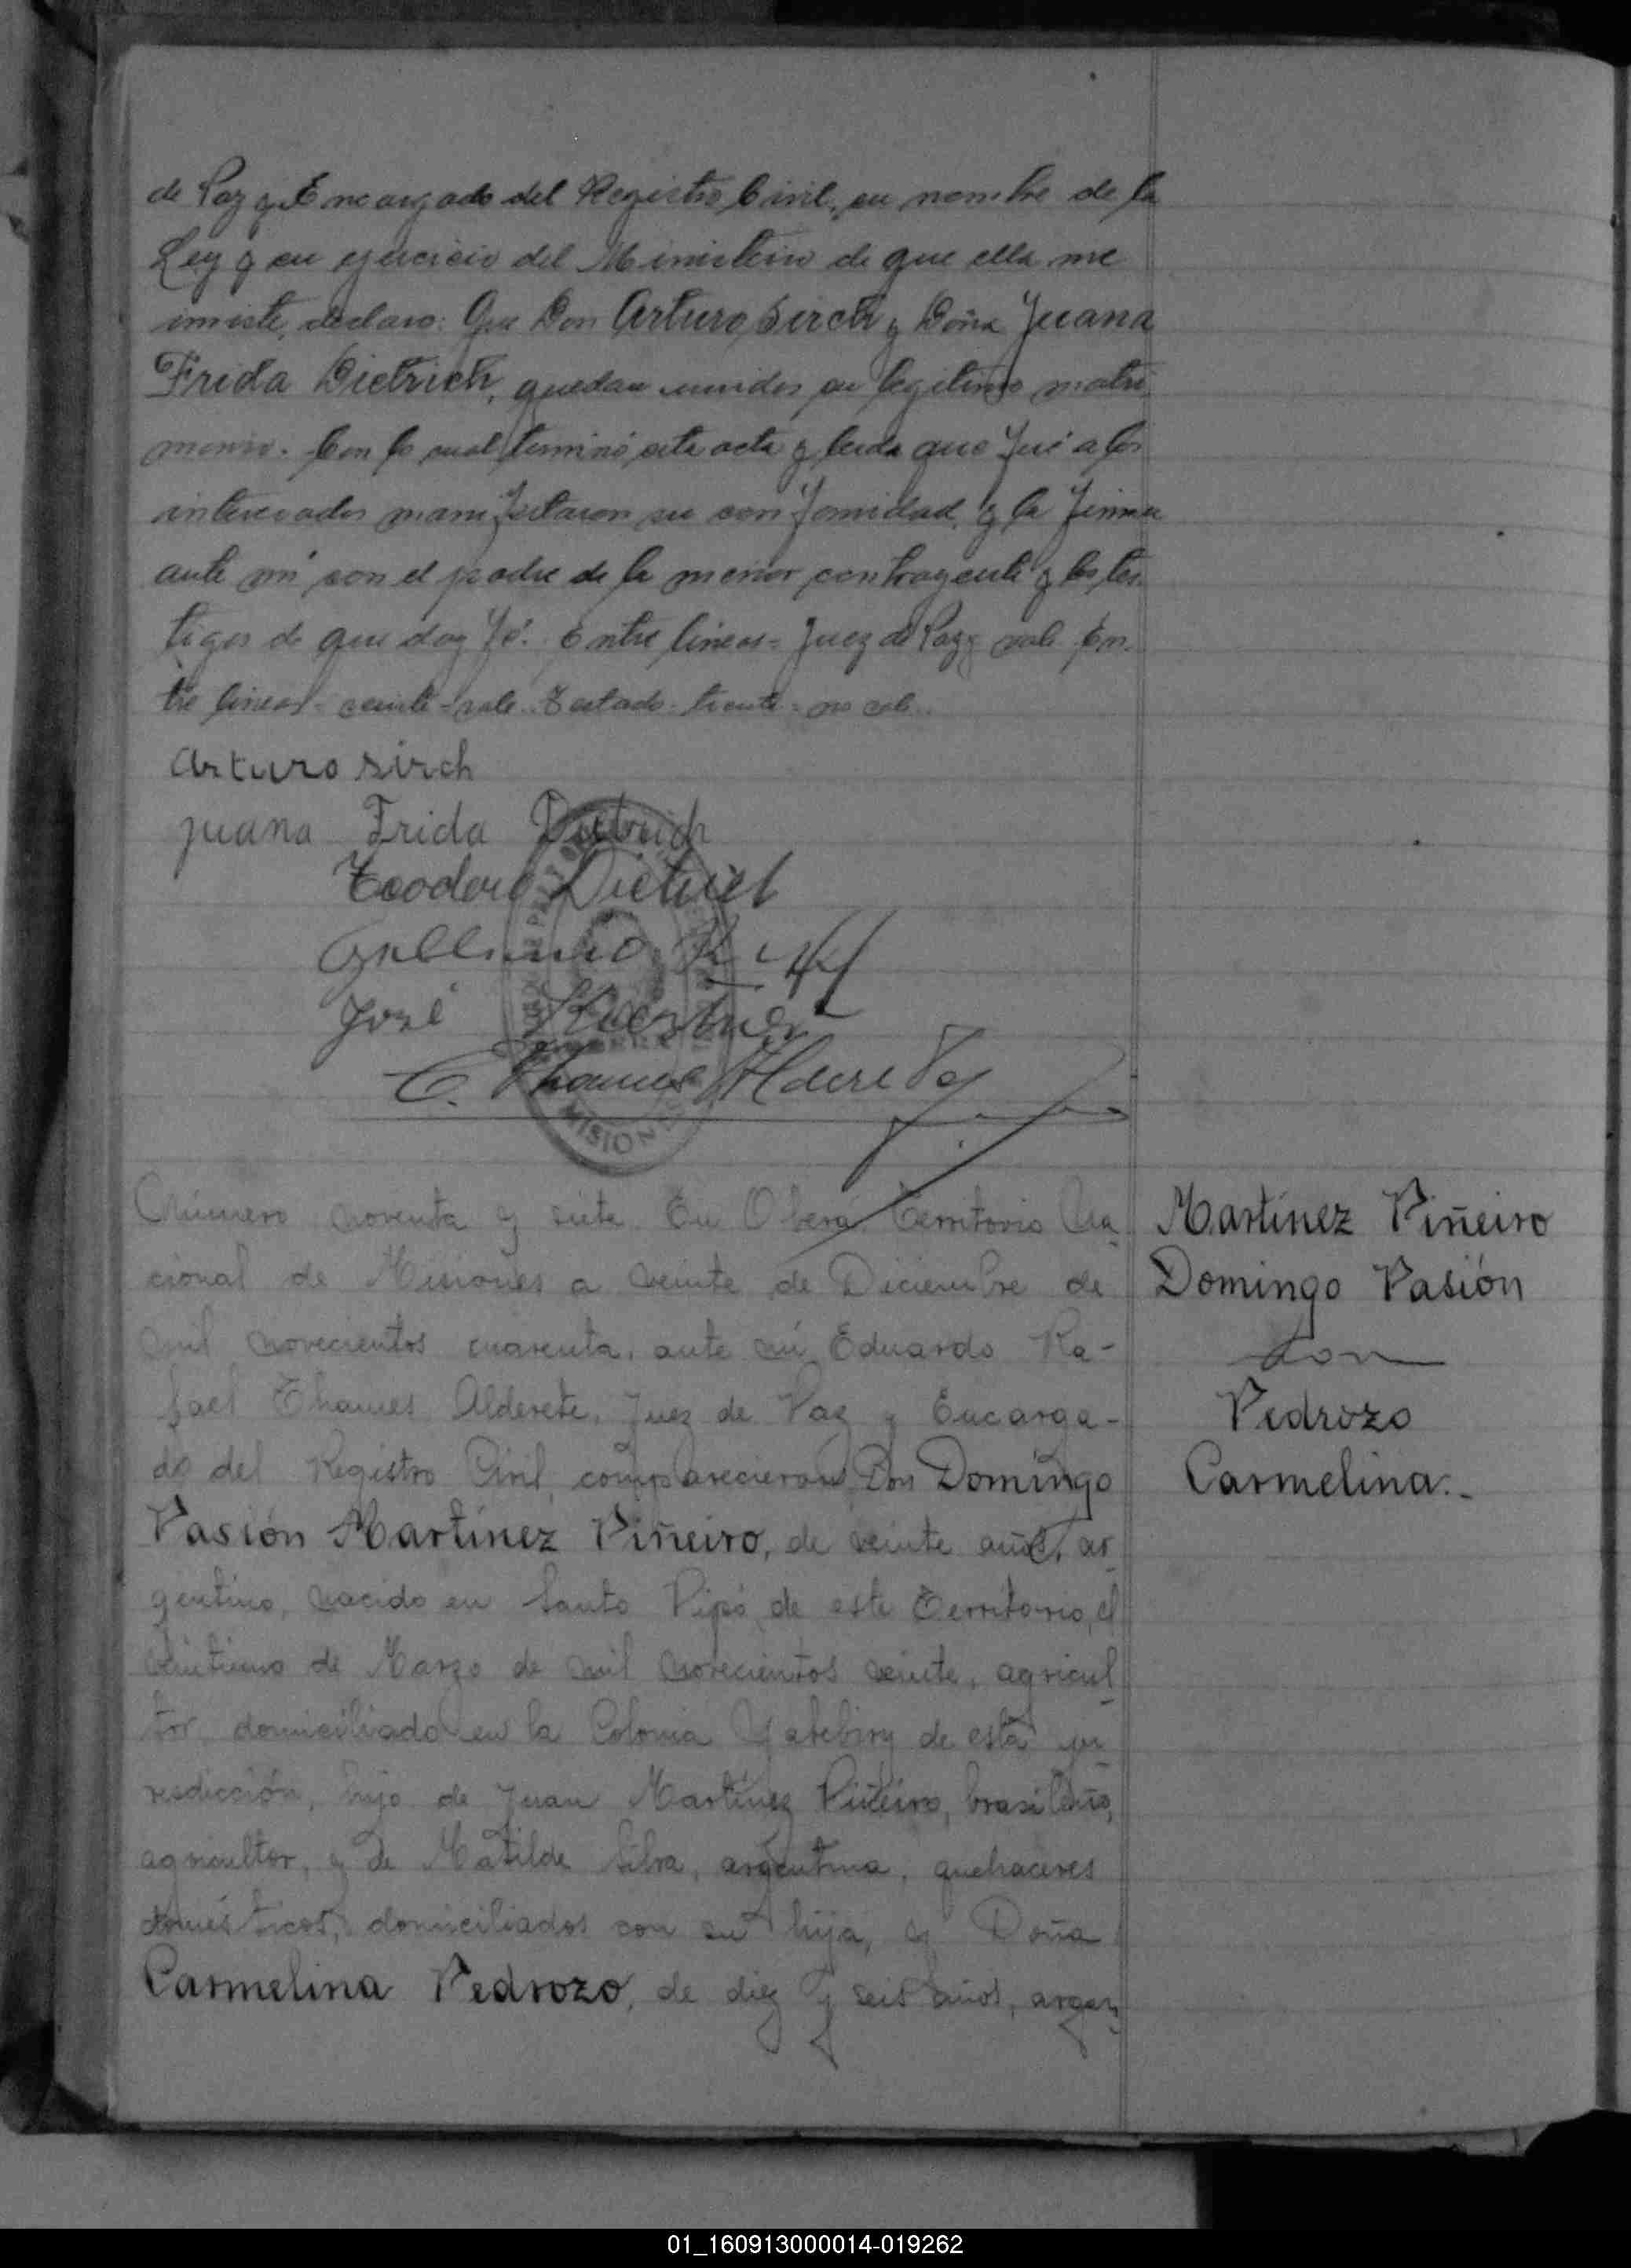 de Paz y Encargado del Registro Civil, en nombre de la
Ley y en ejercicio del Ministerio de que ella me
inviste, declaro: Que Don Arturo Sirch y Doña Juana
Frida Dietrich, quedan unidos en legítimo matri
monio. Con lo cual terminó esta acta y leida que fué a los
interesados manifestaron su conformidad, y la firman
ante mí con el padre de la menor contrayente y los tes
tigos de que doy fé. Entre lineas = Juez de Paz y vale En
tre lineas = veinte = vale. Testado: treinta = no vale.
Arturo Sirch
Juana Frida Dietrich
Teodoro Dietrich
José
E. Thames Alderete
MISIONES
Número noventa y siete En Oberá, Territorio Na
cional de Misiones a veinte de Diciembre de
mil novecientos cuarenta, ante mí Eduardo Ra-
fael Thames Alderete, Juez de Paz y Encarga-
do del Registro Civil, comparecieron Don Domingo
Pasión Martínez Piñeiro, de veinte años, ar
gentino, nacido en Santo Pipó, de este Territorio, el
de Marzo de mil novecientos veinte, agricul
tor domiciliado en la Colonia Yabebiry de esta ju
risdicción, hijo de Juan Martínez Piñeiro, brasileño,
agricultor, y de Matilde Silva, argentina, quehaceres
domésticos, domiciliados con su hija, y Doña
Carmelina Pedrozo, de diez y seis años, argen
Martínez Piñeiro
Domingo Pasión
con
Pedrozo
Carmelina.-
01_160913000014-019262